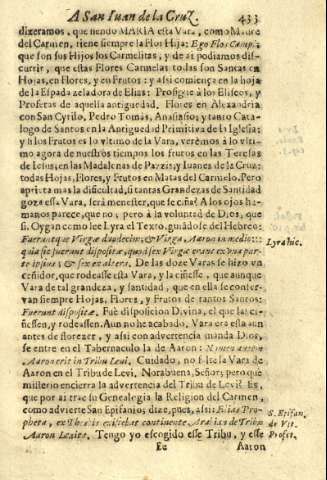 A San Iuan de la Cruz.
433
dixeramos, que siendo MARIA esta Vara, como Madre
del Carmen, tiene siempre la Flor Hija: Ego Flos Campi:
que son sus Hijos los Carmelitas, y de ai podiamos dis-
currir, que estas Flores Carmelas todas son Santas en
Hojas, en Flores, y en Frutos: y asi comiença en la hoja
de la Espada zeladora de Elias: Prosigue à los Eliseos, y
Profetas de aquella antiguedad. Flores en Alexandria
con San Cyrilo, Pedro Tomás, Anastasio; y tanto Cata-
logo de Santos en la Antigued d Primitiva de la Iglesia:
y si los Frutos es lo vltimo de la Vara, verèmos à lo vlti-
mo agora de nuestros tiempos los frutos en las Teresas
de Iesus, en las Madalenas de Pazzi; y Iuanes de la Cruz:
todas Hojas, Flores, y Frutos en Matas del Carmelo. Pero
aprieta mas la dificultad, si tantas Grandezas de Santidad
goza essa Vara, serà menester, que se ciña? A los ojos hu-
manos parece, que no, pero à la voluntad de Dios, que
si. Oygan como lee Lyra el Texto, guiado se del Hebreo:
Fueruntque Virgæ duodecim, & Virga Aaron in medio:
quia sic fuerunt dispositæ, quod sex Virgæ erant ex vna par-
te ipsius, & sex ex altera. De las doze Varas se hizo vn
ceñidor, que rodeasse esta Vara, y la ciñesse, que aunque
Vara de tal grandeza, y santidad, que en ella se conser-
van siempre Hojas, Flores, y Frutos de tantos Santos:
Fuerunt dispositæ. Fuè disposicion Divina, el que las ci-
ñessen, y rodeassen. Aun no he acabado, Vara era esta aun
antes de florezer, y asi con advertencia manda Dios,
se entre en el Tabernaculo la de Aaron: Nomen autem
Aaron erit in Tribu Levi. Cuidado, no falte la Vara de
Aaron en el Tribu de Levi. Norabuena, Señor; pero que
misterio encierra la advertencia del Tribu de Levi? Es,
que por ai trae su Genealogia la Religion del Carmen,
como advierte San Epifanio; dize, pues, asi: Elias Pro-
pheta, ex Thesbis
Aaron Levite. Tengo yo escogido esse Tribu, y esse
Ee
Aaron
Lyra hic.
S. Epifan.
de Vit.
Profet.